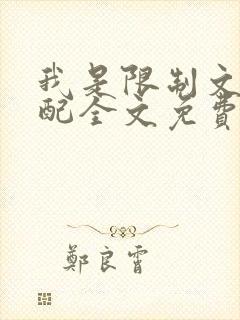 我是限制文
配全文免費
鄭良霄